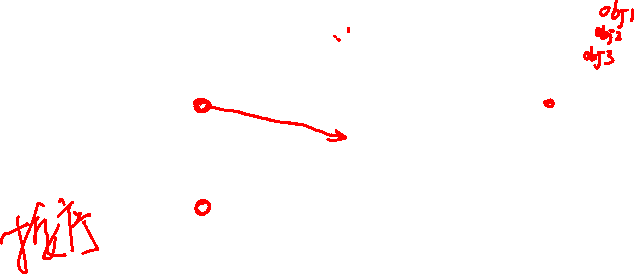 obj1
obj2
obj3